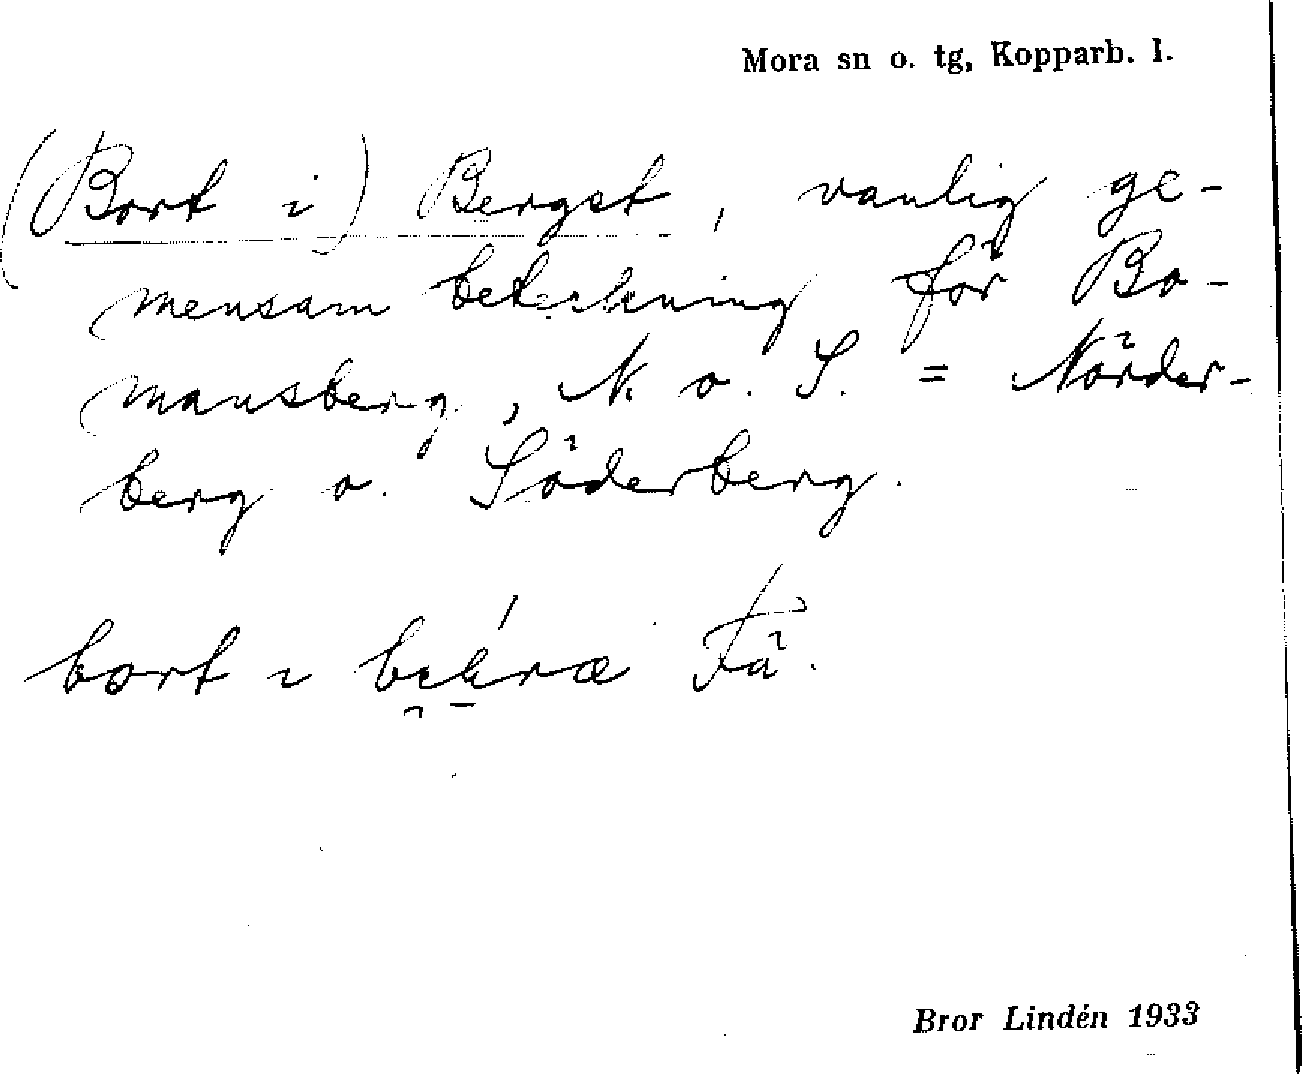 Mora sn o. tg, Kopparb. l.
(Bort i) Berget, vanlig ge-
mensam beteckning för Bo-
mansberg, N. o. S. = Nörder-
berg o. Söderberg.
bort i
Bror Lindén 1933